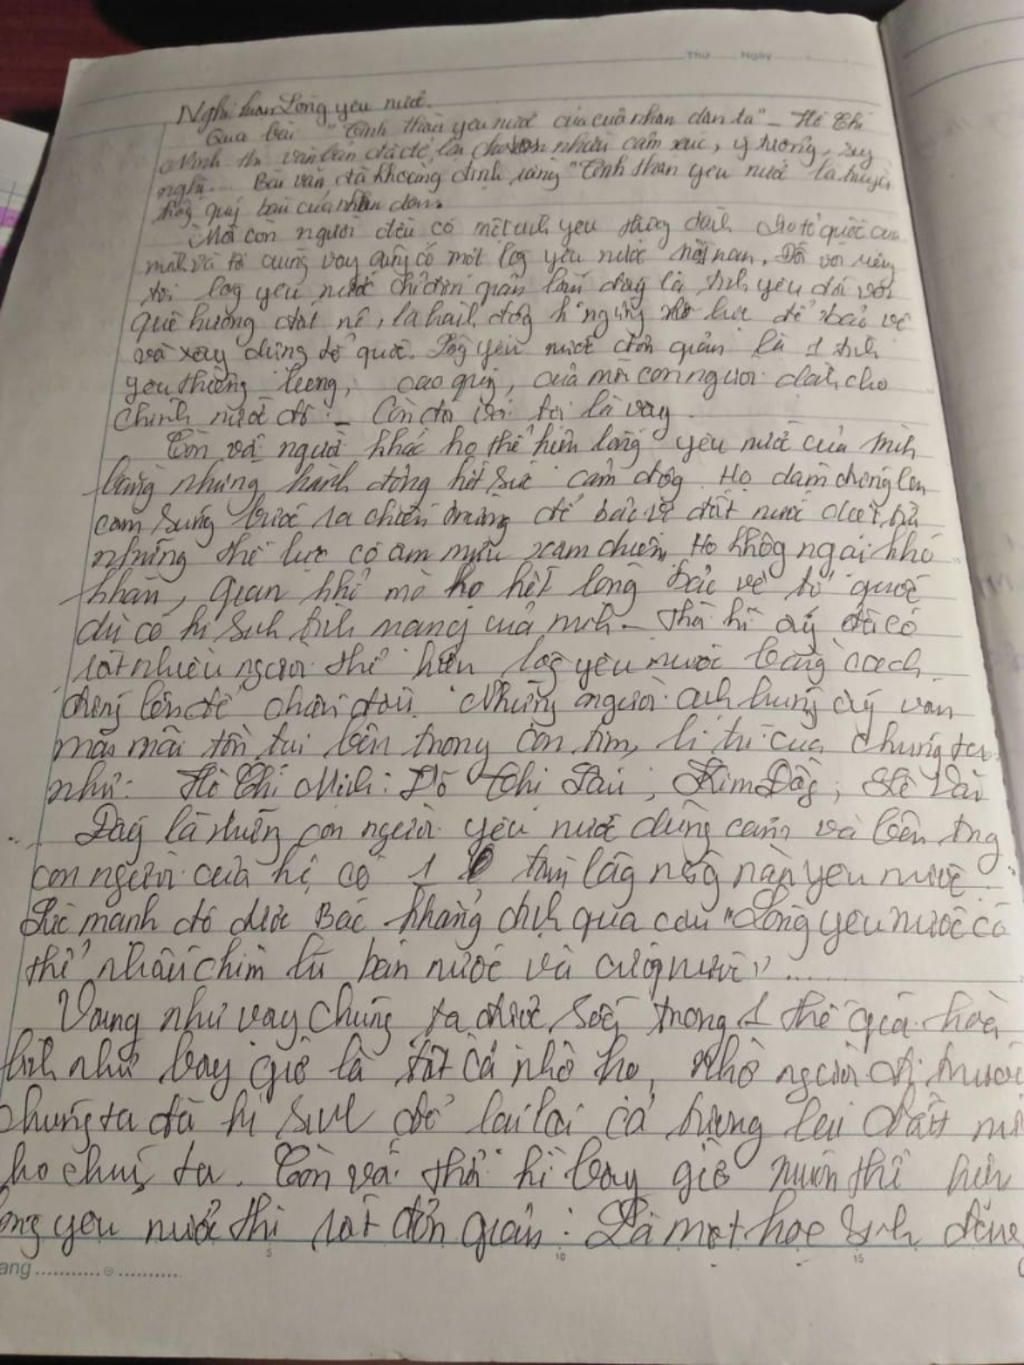 Thứ Ngày
Nghị luận Lòng yêu nước.
Qua bài "Tinh thần yêu nước của của nhân dân ta" - Hồ Chí
Minh thì văn bản đã để lại cho em nhiều cảm xúc, ý tưởng, suy
nghĩ... Bài văn đã khoảng định rằng "Tinh thần yêu nước là truyền
thống quý báu của nhân dân.
Mỗi con người đều có một tình yêu dành cho tổ quốc của
mình và tôi cũng vay cũng có một log yêu nước nồng nan. Đối với riêng
tôi log yêu nước chỉ đơn giản lắm đây là tình yêu đối với
quê hương đất nc, là hành động k ngừng nỗ lực để bảo vệ
và xây dựng tổ quốc. Lòg yêu nước đơn giản là 1 tình
yêu thiêng liêng, cao quý, của mỗi con người dành cho
chính nước đó - Còn đối với tôi là vậy.
Còn với người khác họ thể hiện lòng yêu nước của mình
bằng những hành động hết sức cảm động. Họ dám đứng lên
cầm súng bước ra chiến trường để bảo vệ đất nước
những thế lực có âm mưu xâm chiếm. Họ không ngại khó
khăn, gian khổ mà họ hết lòng bảo vệ tổ quốc
dù có hi sinh tính mạng của mình - Thời kì ấy đã có
rất nhiều người thể hiện log yêu nước bằng cách
đứng lên để chiến đấu. Những người anh hùng ấy vẫn
mãi mãi tồn tại bên trong con tim, lí trí của chúng ta
như: Hồ Chí Minh: Võ Thị Sáu, Kim Đồg,
Đây là những con người yêu nước dũng cảm và bên trng
con người của họ có 1 tấm lòg nồg nàn yêu nước.
Sức mạnh đó được Bác khẳng định qua câu "Lòng yêu nước có
thể nhấn chìm lũ bán nước và cướp nước"...
Vâng như vậy chúng ta được sống trong 1 thế giới hoà
bình như bây giờ là tất cả nhờ họ, nhờ người đi trước
chúng ta đã hi sinh để lại cả tương lai đất nc
cho chúng ta. Còn với thời kì bây giờ muốn thể hiện
lòng yêu nước thì rất đơn giản: Là một học sinh đang